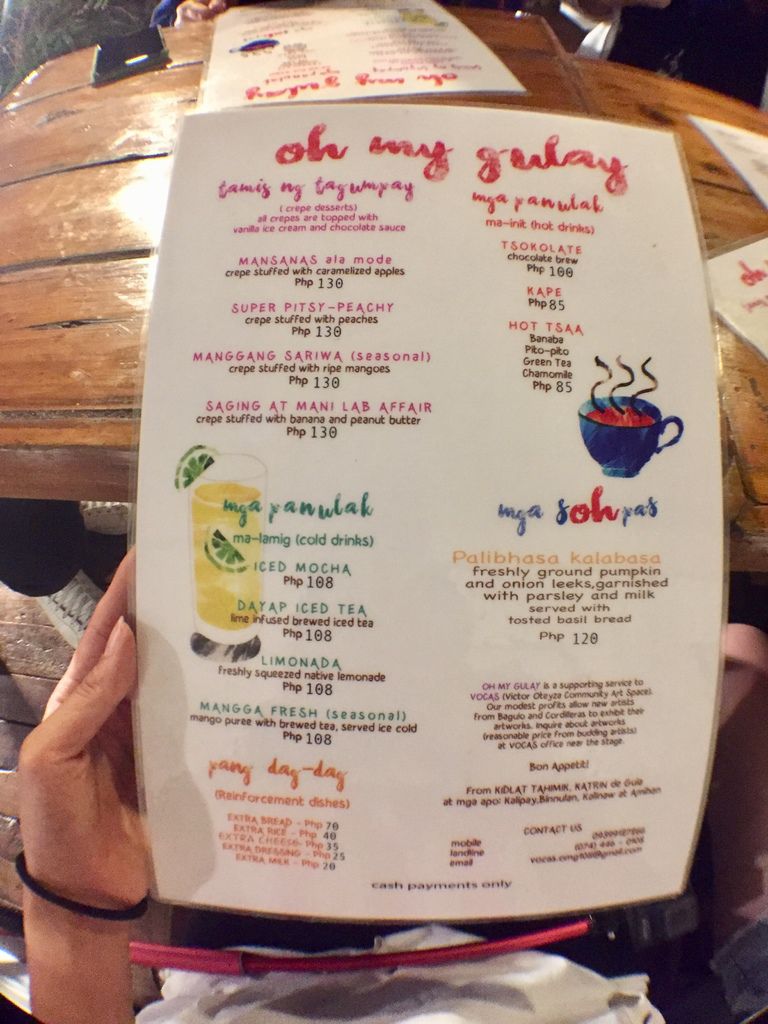 oh my gulay
tamis ng tagumpay
(crepe desserts)
all crepes are topped with
vanilla ice cream and chocolate sauce
MANSANAS ala mode
crepe stuffed with caramelized apples
Php 130
SUPER PITSY-PEACHY
crepe stuffed with peaches
Php 130
MANGGANG SARIWA (seasonal)
crepe stuffed with ripe mangoes
Php 130
SAGING AT MANI LAB AFFAIR
crepe stuffed with banana and peanut butter
Php 130
mga panulak
ma-lamig (cold drinks)
ICED MOCHA
Php 108
DAYAP ICED TEA
lime infused brewed iced tea
Php 108
LIMONADA
freshly squeezed native lemonade
Php 108
MANGGA FRESH (seasonal)
mango puree with brewed tea, served ice cold
Php 108
pang dag-dag
(Reinforcement dishes)
EXTRA BREAD - Php 70
EXTRA RICE - Php 40
EXTRA CHEESE- Php 35
EXTRA DRESSING - Php 25
EXTRA MILK - Php 20
mga panulak
ma-init (hot drinks)
TSOKOLATE
chocolate brew
Php 100
KAPE
Php 85
HOT TSAA
Banaba
Pito-pito
Green Tea
Chamomile
Php 85
mga sohpas
Palibhasa kalabasa
freshly ground pumpkin
and onion leeks,garnished
with parsley and milk
served with
tosted basil bread
Php 120
OH MY GULAY is a supporting service to
VOCAS (Victor Oteyza Community Art Space).
Our modest profits allow new artists
from Baguio and Cordilleras to exhibit their
artworks. Inquire about artworks
(reasonable price from budding artists)
at VOCAS office near the stage.
Bon Appetit!
From KIDLAT TAHIMIK, KATRIN de Guia
at mga apo: Kalipay,Binnulan, Kalinaw at Amihan
CONTACT US
mobile
landline (074) 446 - 0108
email vocas.omg108@gmail.com
cash payments only